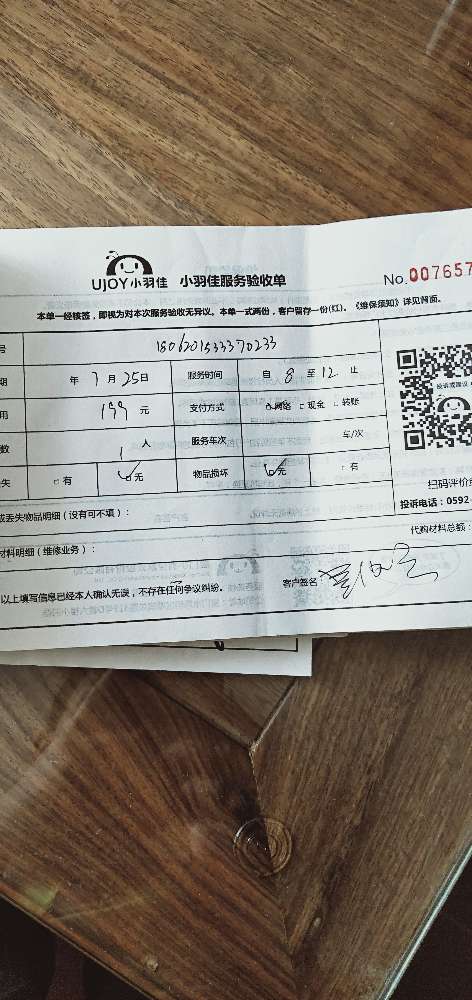 UJOY小羽佳 小羽佳服务验收单 No.007657
本单一经核签，即视为对本次服务验收无异议。本单一式两份，客户留存一份(红)。《维保须知》详见背面。
号 1806201533370233
期 年 7 月 25 日 服务时间 自 8 至 12 止
用 199 元 支付方式 网络 现金 转账
投诉或建议
数 1 人 服务车次 车/次
失 有 无 物品损坏 无 有
扫码评价
或丢失物品明细（设有可不填）： 投诉电话：0592-
代购材料总额：
材料明细（维修业务）：
以上填写信息已经本人确认无误，不存在任何争议纠纷。 客户签名：